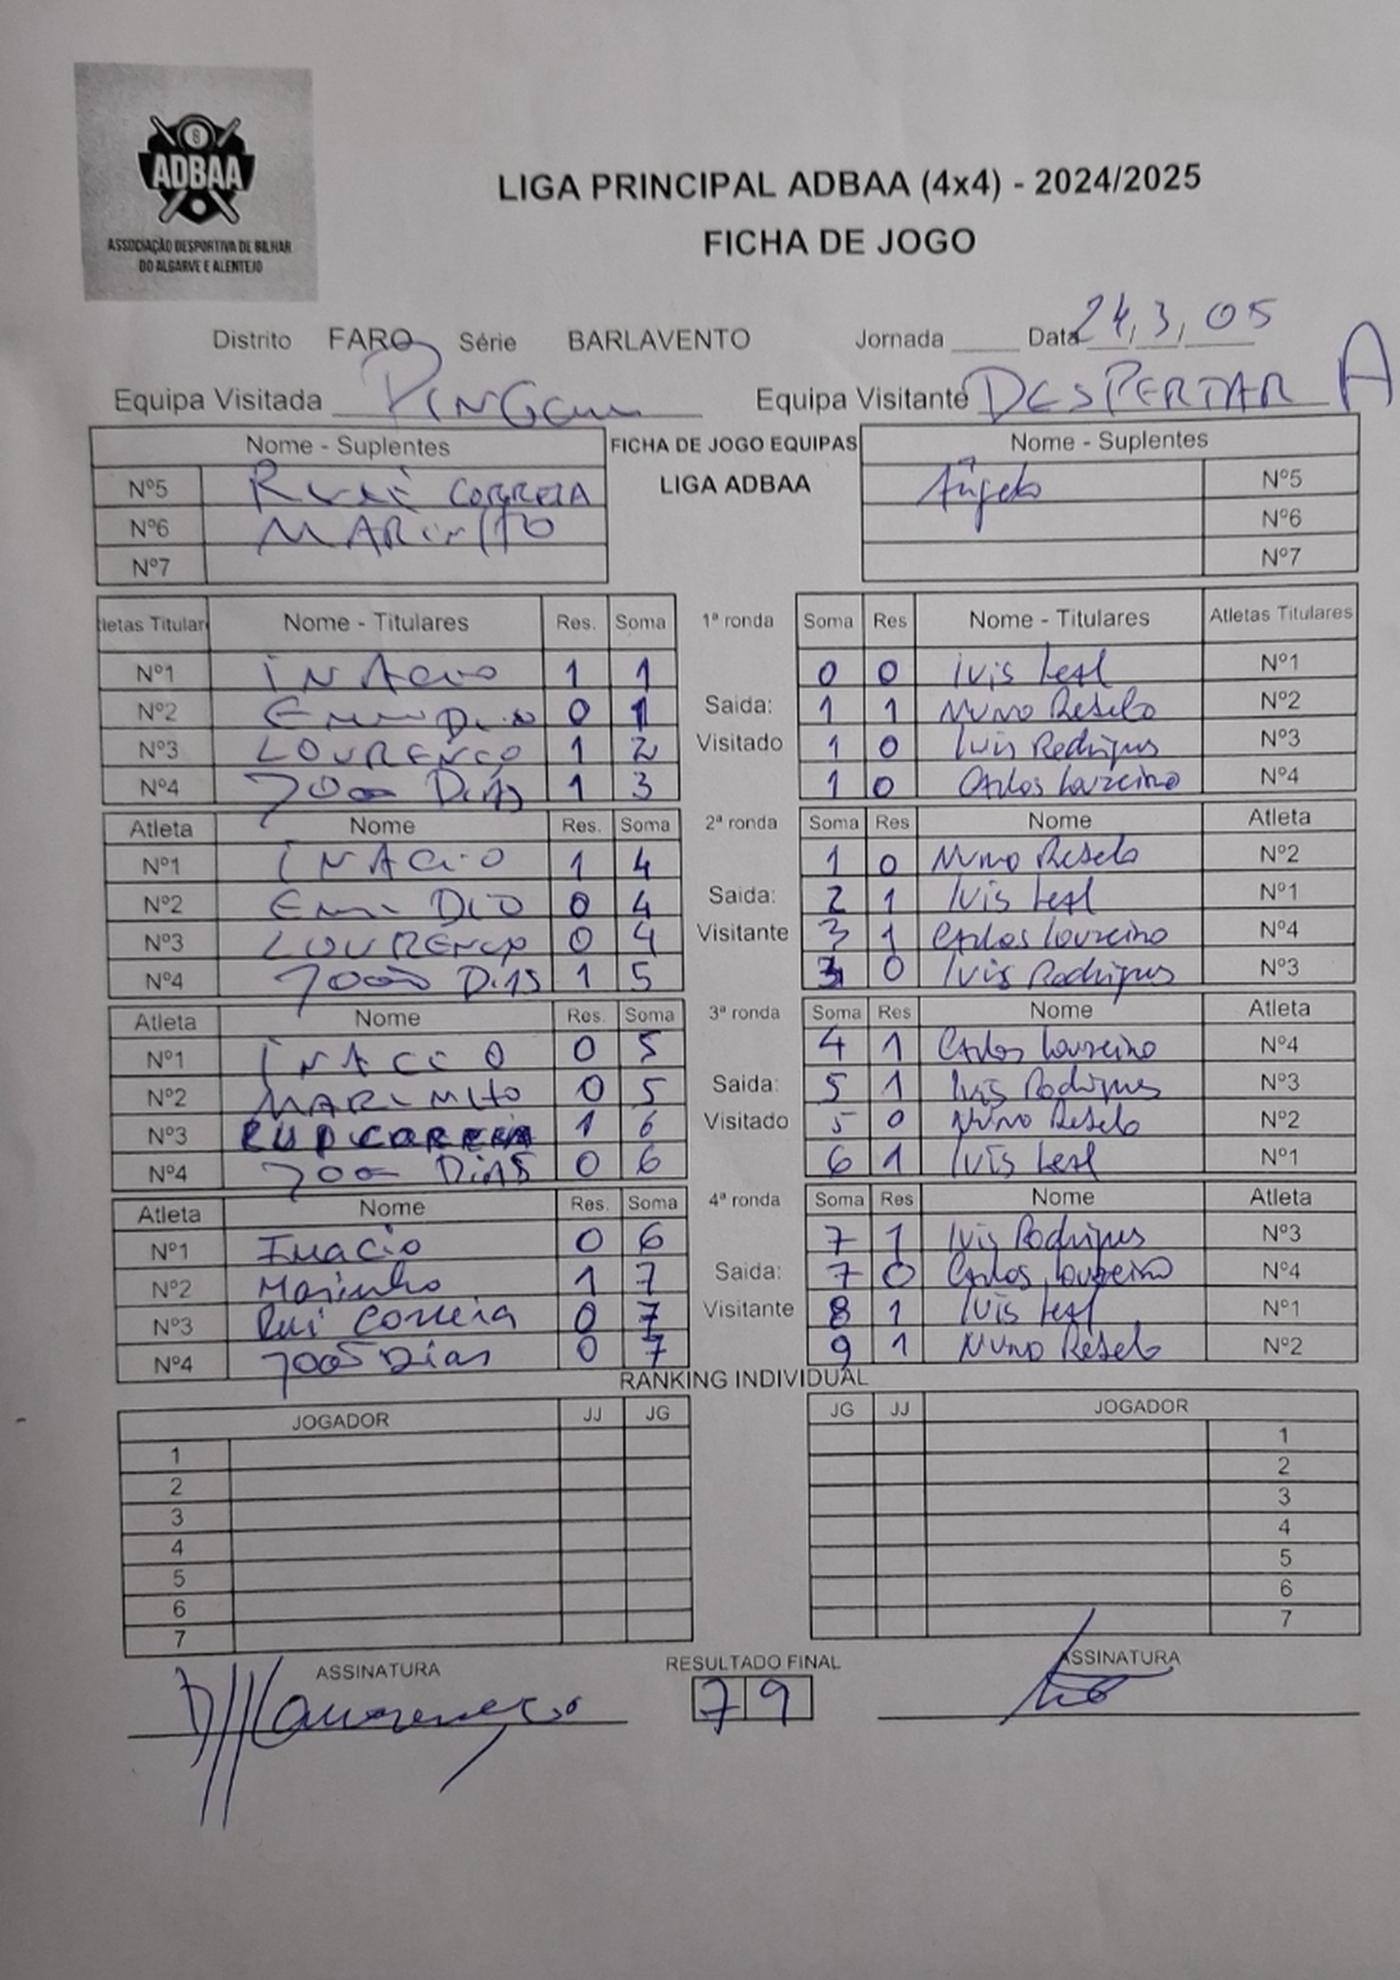 ADBAA
ASSOCIAÇÃO DESPORTIVA DE BILHAR
DO ALGARVE E ALENTEJO
LIGA PRINCIPAL ADBAA (4x4) - 2024/2025
FICHA DE JOGO
Distrito FARO Série BARLAVENTO Jornada Data 24,3,05
Equipa Visitada Equipa Visitante DESPERTAR A
Nome - Suplentes FICHA DE JOGO EQUIPAS Nome - Suplentes
Nº5 CORREIA LIGA ADBAA Ângelo Nº5
Nº6 MARINHO Nº6
Nº7 Nº7
letas Titular Nome - Titulares Res. Soma 1ª ronda Soma Res Nome - Titulares Atletas Titulares
Nº1 INACIO 1 1 0 0 luis leal Nº1
Nº2 0 1 Saida: 1 1 NUNO Rebelo Nº2
Nº3 LOURENÇO 1 2 Visitado 1 0 luis Rodrigues Nº3
Nº4 João DIAS 1 3 1 0 Carlos loureiro Nº4
Atleta Nome Res. Soma 2ª ronda Soma Res Nome Atleta
Nº1 INACIO 1 4 1 0 NUNO Rebelo Nº2
Nº2 EMIDIO 0 4 Saida: 2 1 luis leal Nº1
Nº3 LOURENÇO 0 4 Visitante 3 1 Carlos loureiro Nº4
Nº4 João DIAS 1 5 3 0 luis Rodrigues Nº3
Atleta Nome Res. Soma 3ª ronda Soma Res Nome Atleta
Nº1 INACIO 0 5 4 1 Carlos loureiro Nº4
Nº2 MARINHO 0 5 Saida: 5 1 luis Rodrigues Nº3
Nº3 RUI CORREIA 1 6 Visitado 5 0 NUNO Rebelo Nº2
Nº4 João DIAS 0 6 6 1 luis leal Nº1
Atleta Nome Res. Soma 4ª ronda Soma Res Nome Atleta
Nº1 Inacio 0 6 7 1 luis Rodrigues Nº3
Nº2 Marinho 1 7 Saida: 7 0 Carlos loureiro Nº4
Nº3 Rui Correia 0 7 Visitante 8 1 luis leal Nº1
Nº4 João Dias 0 7 9 1 NUNO Rebelo Nº2
RANKING INDIVIDUAL
JOGADOR JJ JG JG JJ JOGADOR
1 1
2 2
3 3
4 4
5 5
6 6
7 7
ASSINATURA RESULTADO FINAL ASSINATURA
7 9